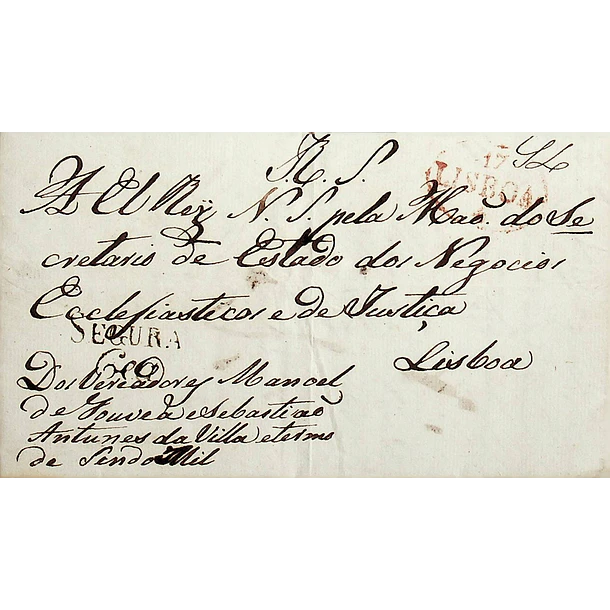 R. S.
17
LISBOA
A El Rey N. S. pela Mão do Se
cretario de Estado dos Negocios
Ecclesiasticos e de Justiça
SEGURA
Lisboa
Dos Vereadores Manoel
de Gouvea e Sebastião
Antunes da Villa e termo
de